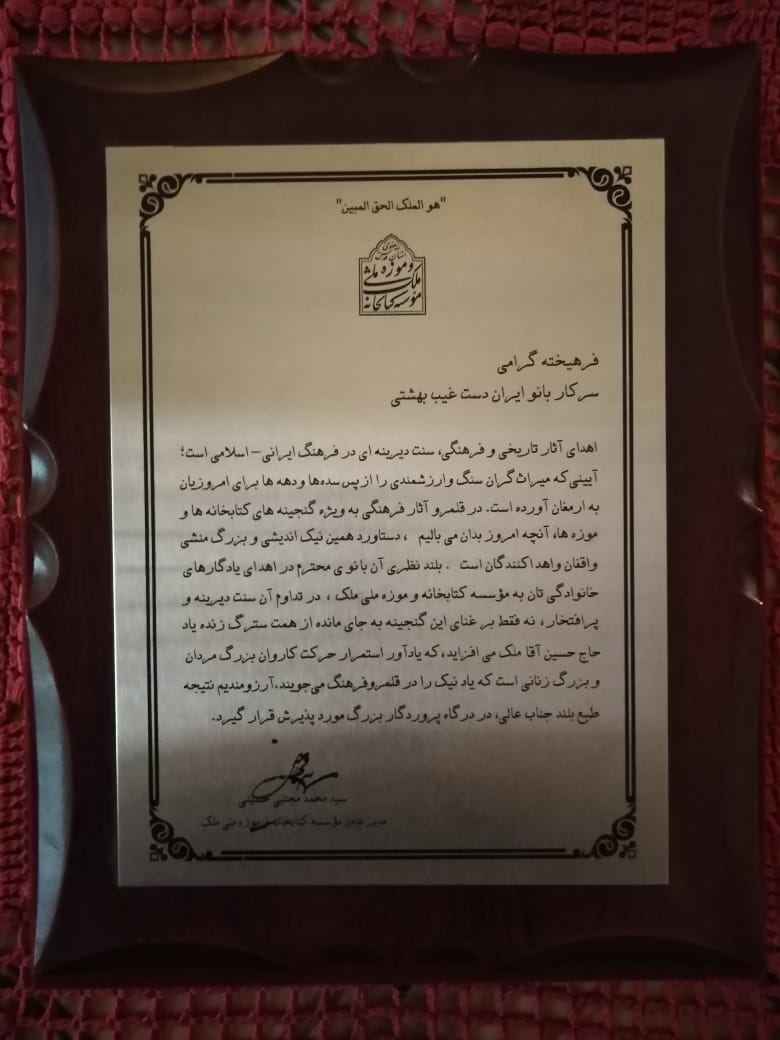 "هو الملک الحق المبین"
آستان قدس رضوی
مؤسسه کتابخانه و موزه ملی ملک
فرهیخته گرامی
سرکار بانو ایران دست غیب بهشتی
اهدای آثار تاریخی و فرهنگی، سنت دیرینه ای در فرهنگ ایرانی – اسلامی است؛
آیینی که میراث گران سنگ وارزشمندی را از پس سده‌ها ودهه ها برای امروزیان
به ارمغان آورده است. در قلمرو آثار فرهنگی به ویژه گنجینه های کتابخانه ها و
موزه ها، آنچه امروز بدان می بالیم ، دستاورد همین نیک اندیشی و بزرگ منشی
واقفان واهداکنندگان است . بلند نظری آن بانوی محترم در اهدای یادگارهای
خانوادگی تان به مؤسسه کتابخانه و موزه ملی ملک ، در تداوم آن سنت دیرینه و
پرافتخار، نه فقط بر غنای این گنجینه به جای مانده از همت سترگ زنده یاد
حاج حسین آقا ملک می افزاید، که یادآور استمرار حرکت کاروان بزرگ مردان
و بزرگ زنانی است که یاد نیک را در قلمروفرهنگ می‌جویند.آرزومندیم نتیجه
طبع بلند جناب عالی، در درگاه پروردگار بزرگ مورد پذیرش قرار گیرد.
سید محمد مجتبی حسینی
مدیر عامل مؤسسه کتابخانه و موزه ملی ملک